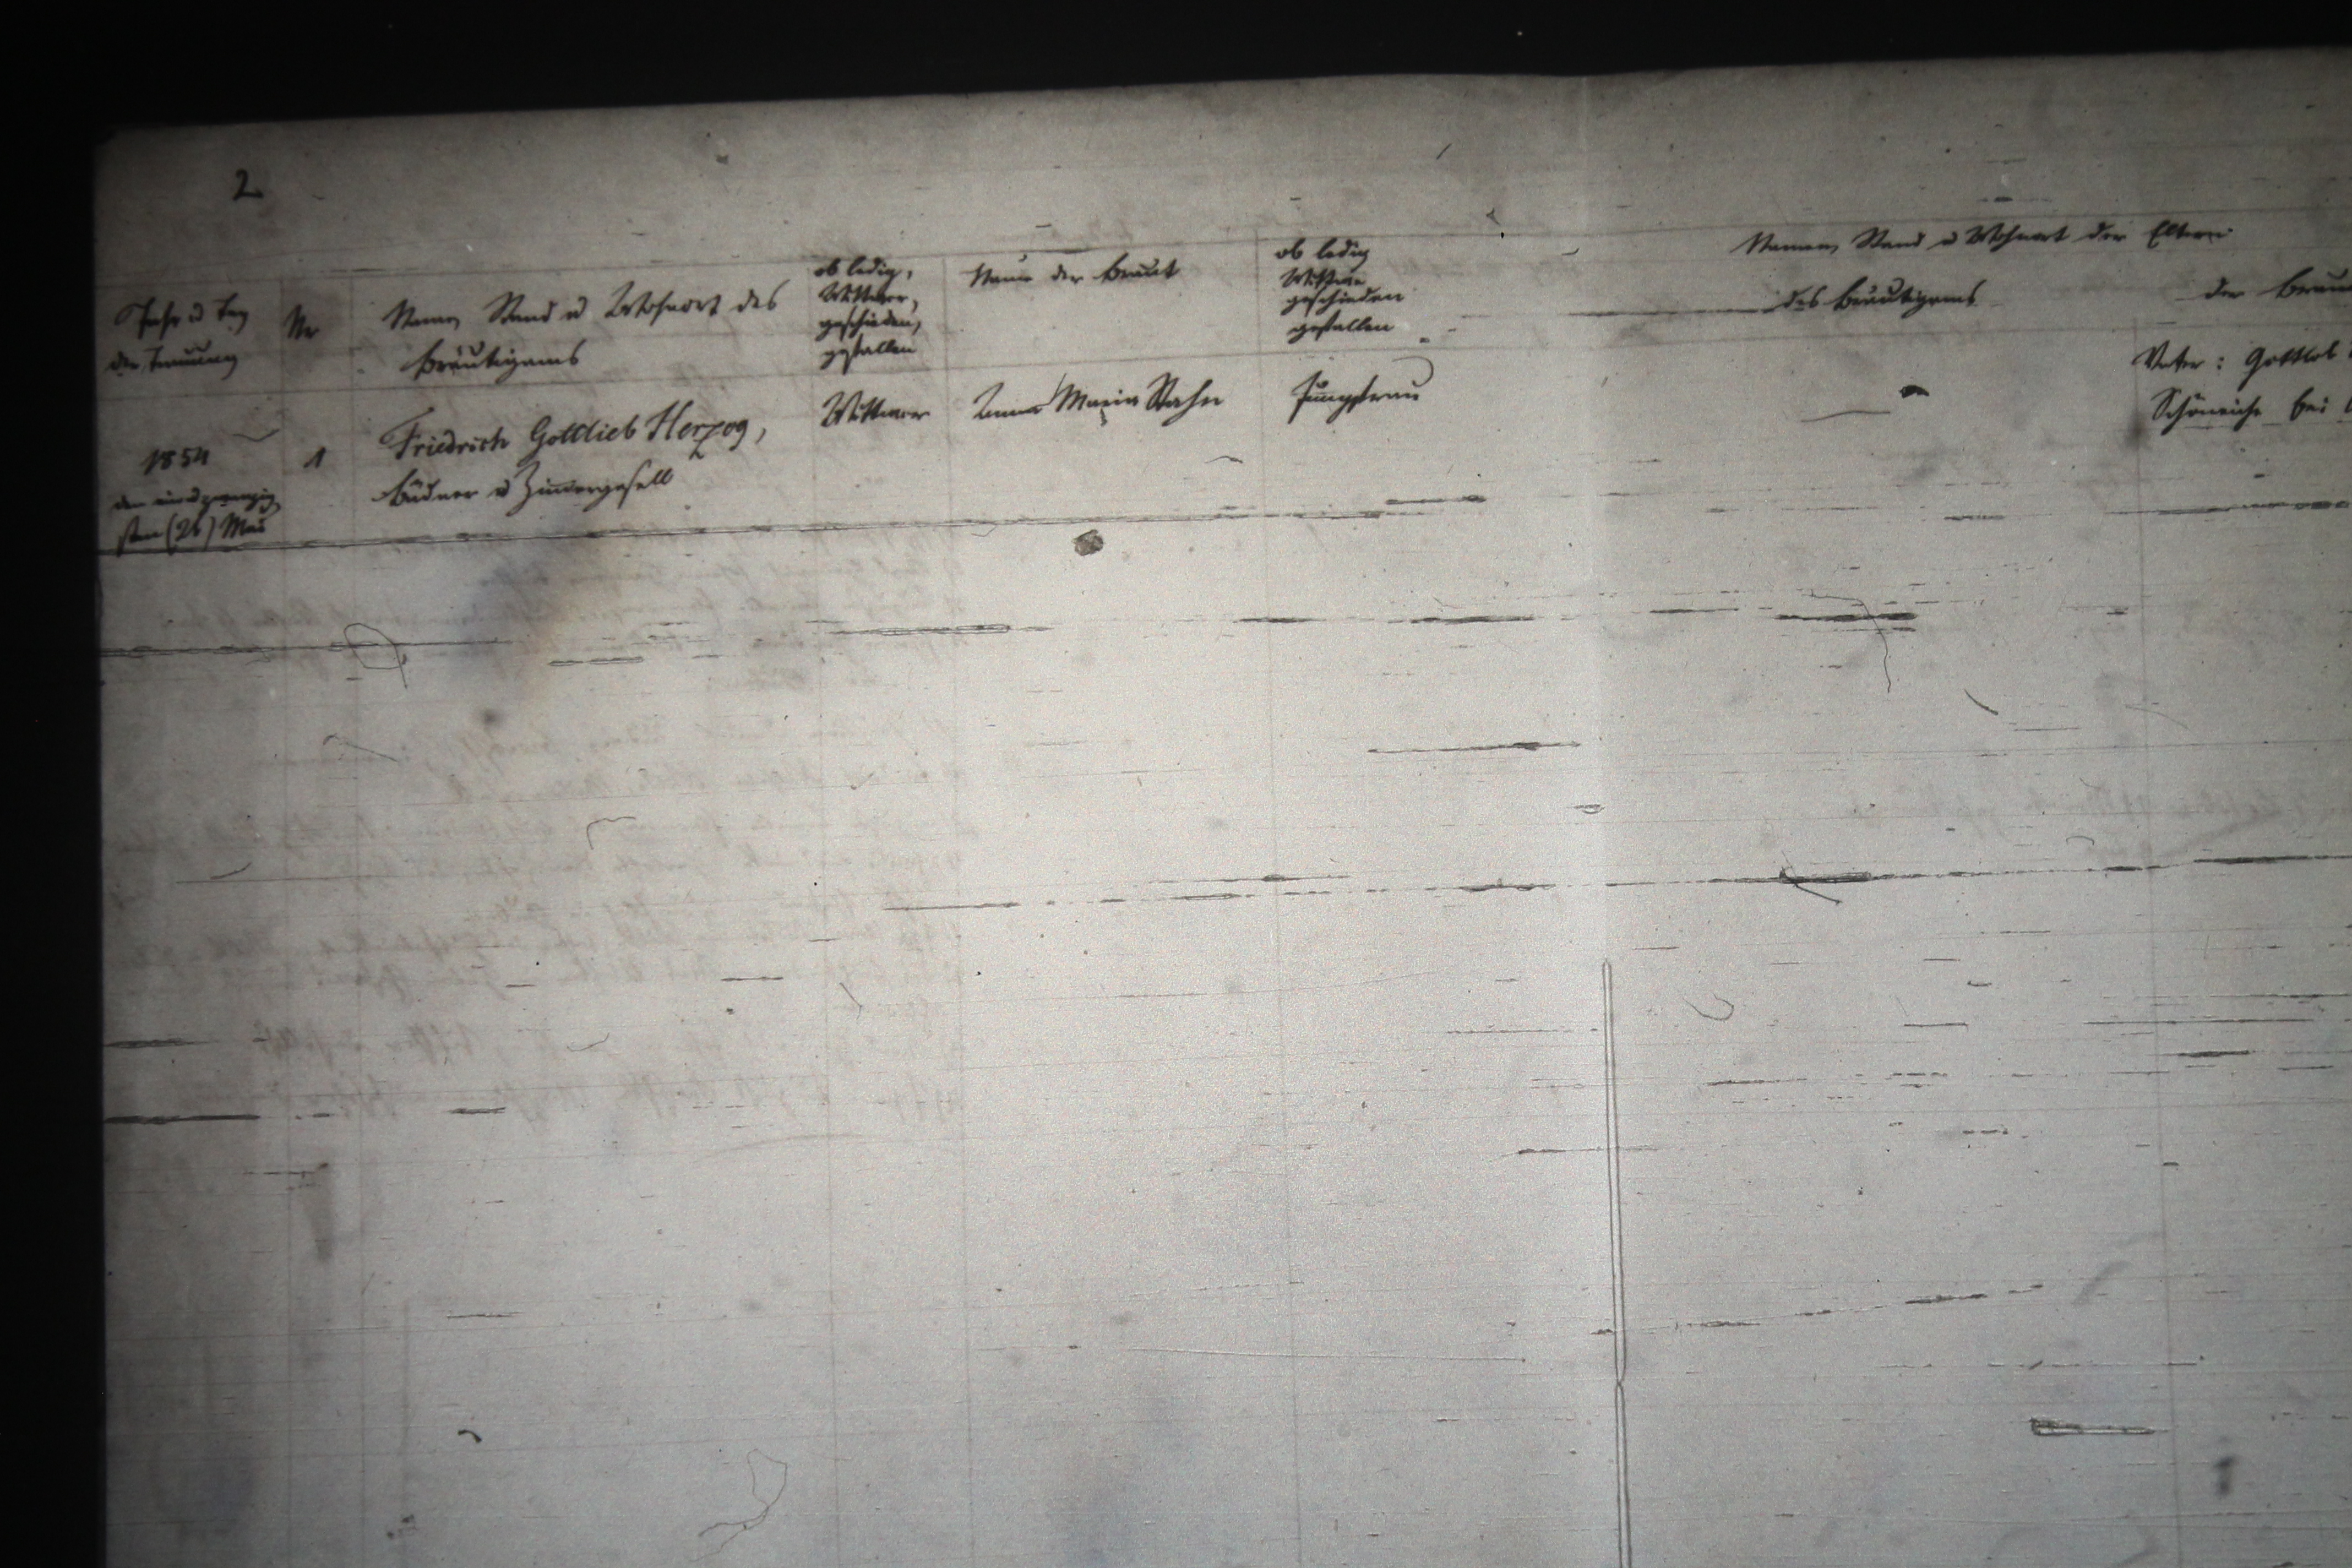 2
Jahr u Tag
der Trauung
Nr
Namen Stand u Wohnort des
Bräutigams
ob ledig,
Wittwer,
geschieden,
gefallen
Name der Braut
ob ledig
Wittwe
geschieden
gefallen
Namen, Stand u Wohnort der Eltern
des Bräutigams
der Brau
1854
den
sten (26) Mai
1
Friedrich Gottlieb Herzog,
Büdner u Zimmergesell
Wittwer
Anna Maria Stahn
Jungfrau
Vater: Gottlob
Schöneiche bei